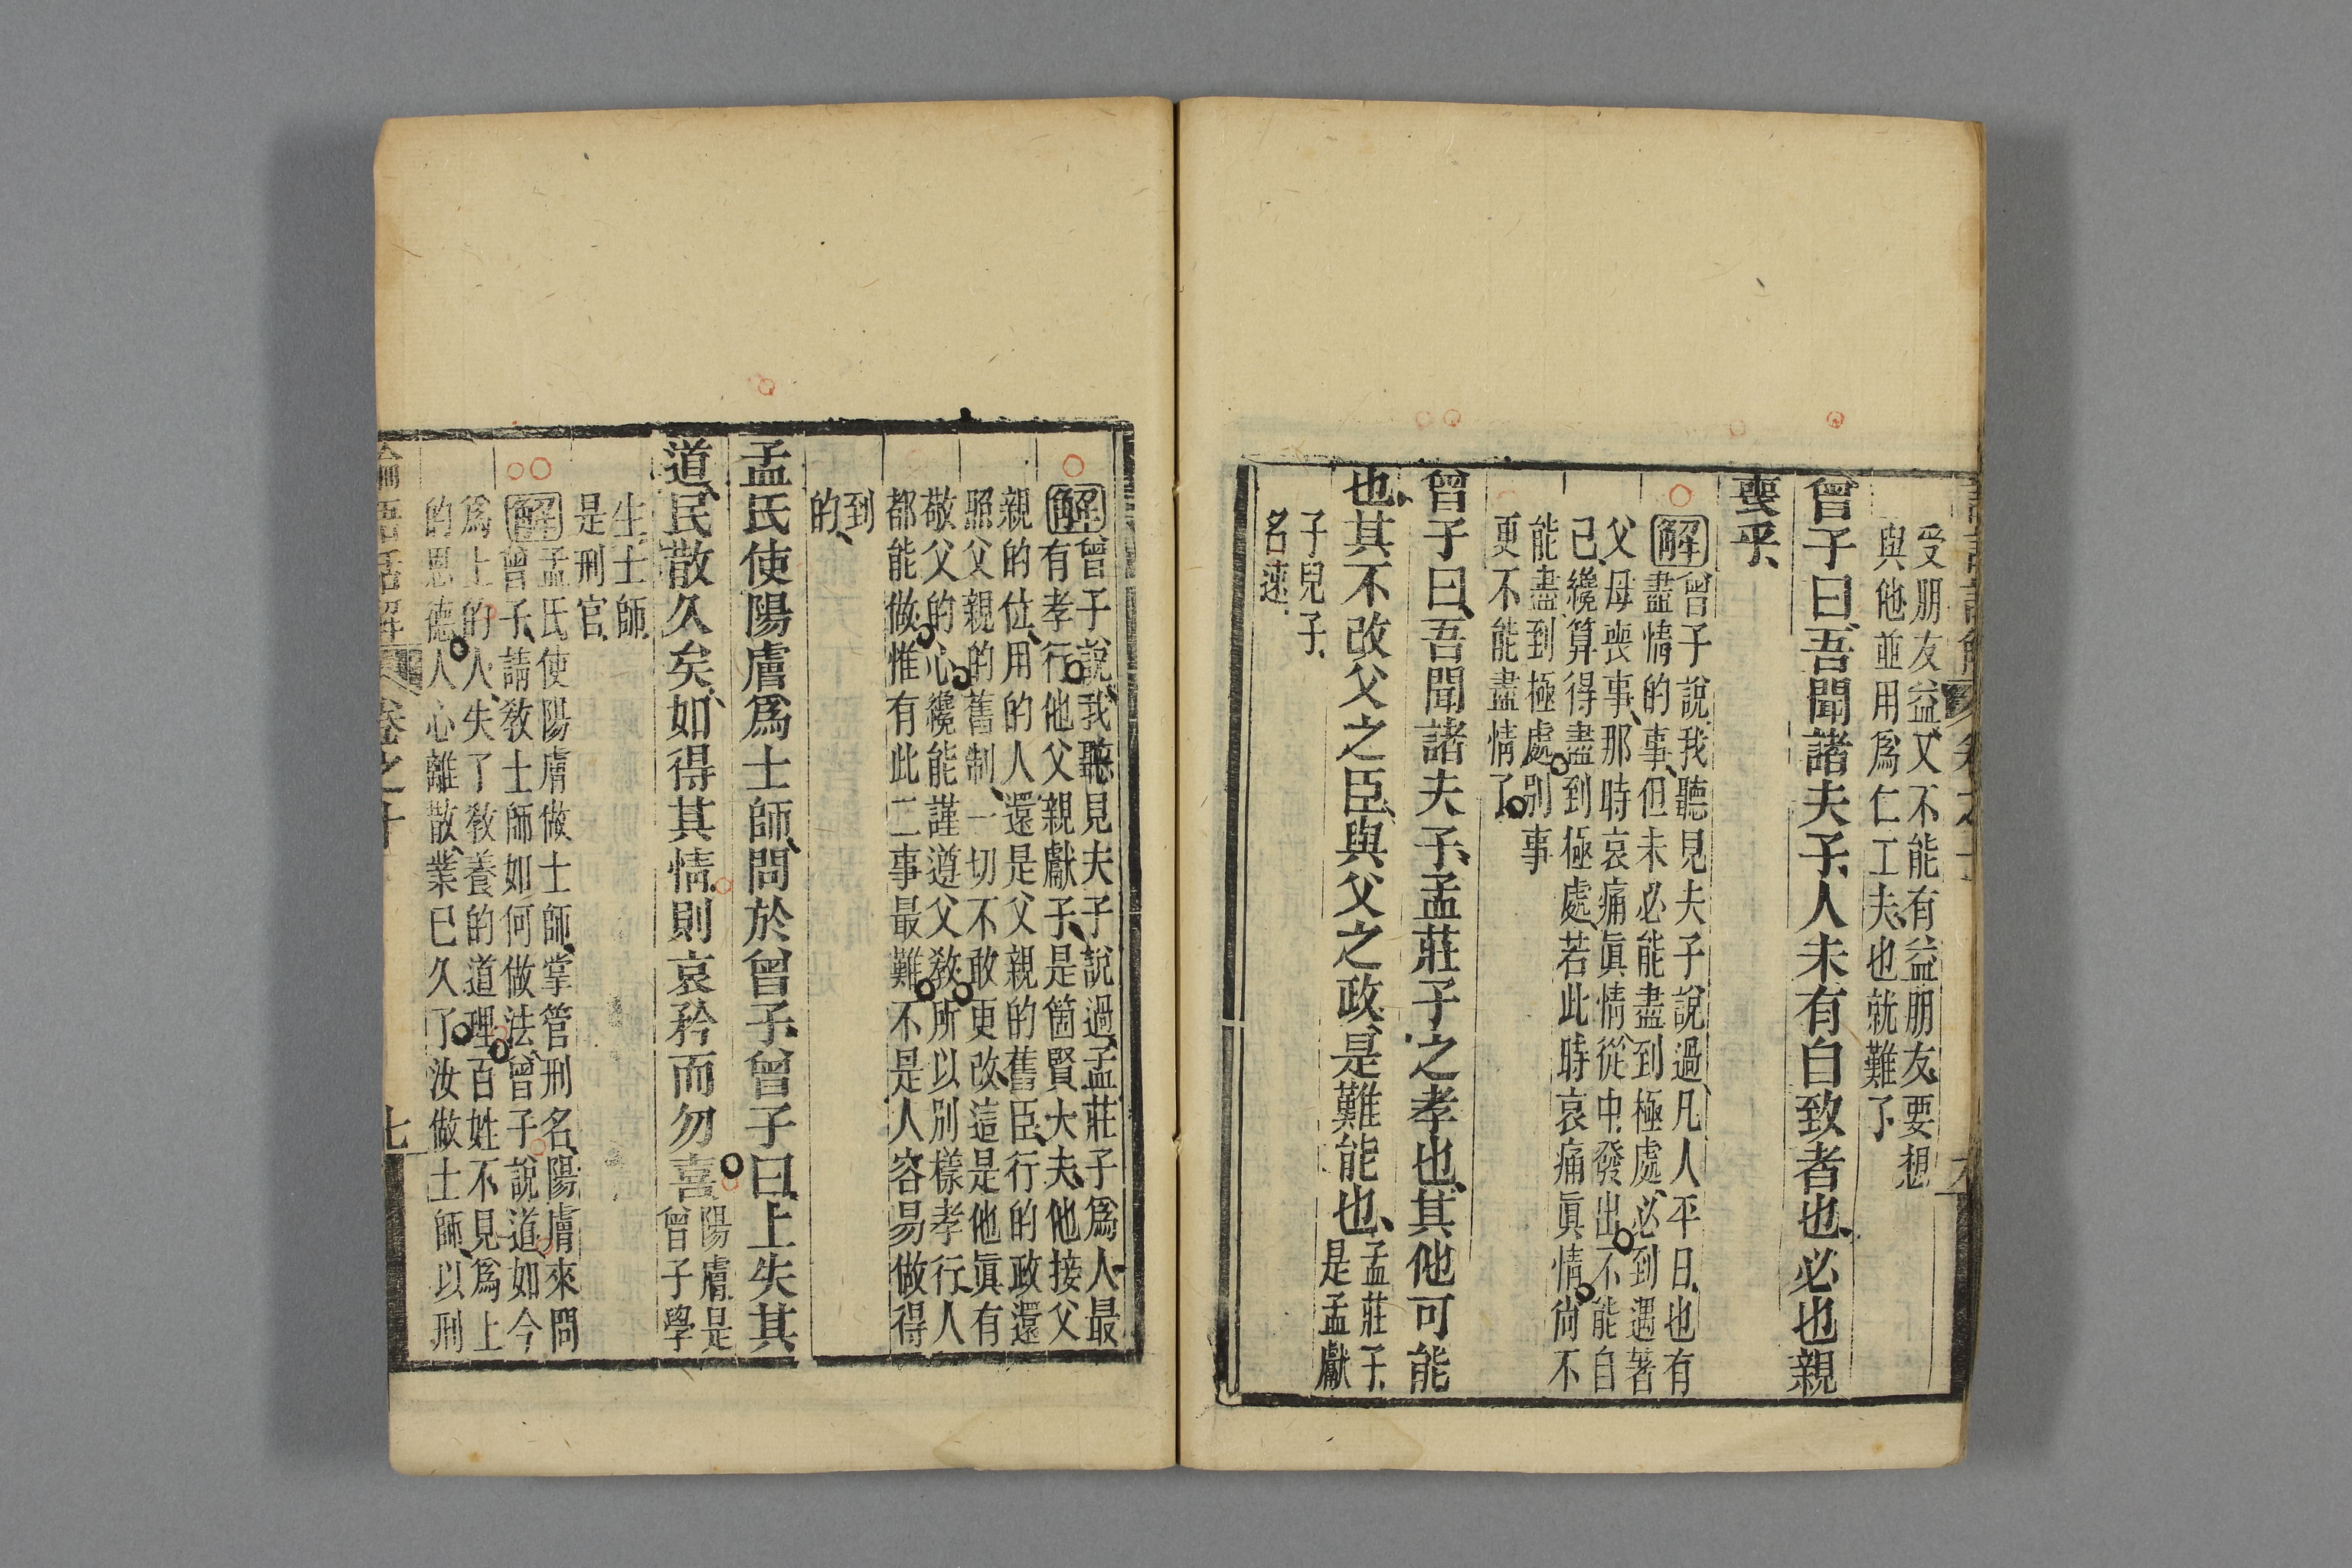 受朋友益又不能有益朋友要想
與他並用爲仁工夫也就難了
曾子曰吾聞諸夫子人未有自致者也必也親
喪乎
解曾子說我聽見夫子說過凡人平日也有
盡情的事但未必能盡到極處必到遇著
父母喪事那時哀痛眞情從中發出不能自
已纔算得盡到極處若此時哀痛眞情尙不
能盡到極處別事
更不能盡情了
曾子曰吾聞諸夫子孟莊子之孝也其他可能
也其不改父之臣與父之政是難能也孟莊子
是孟獻
子兒子
名速
解曾子說我聽見夫子說過孟莊子爲人最
有孝行他父親獻子是箇賢大夫他接父
親的位用的人還是父親的舊臣行的政還
照父親的舊制一切不敢更改這是他眞有
敬父的心纔能謹遵父教所以別樣孝行人
都能做惟有此二事最難不是人容易做得
到
的
孟氏使陽膚爲士師問於曾子曾子曰上失其
道民散久矣如得其情則哀矜而勿喜陽膚是
曾子學
生士師
是刑官
解孟氏使陽膚做士師掌管刑名陽膚來問
曾子請教士師如何做法曾子說道如今
爲上的人失了教養的道理百姓不見爲上
的恩德人心離散業已久了汝做士師以刑
論語話解 卷之十 七